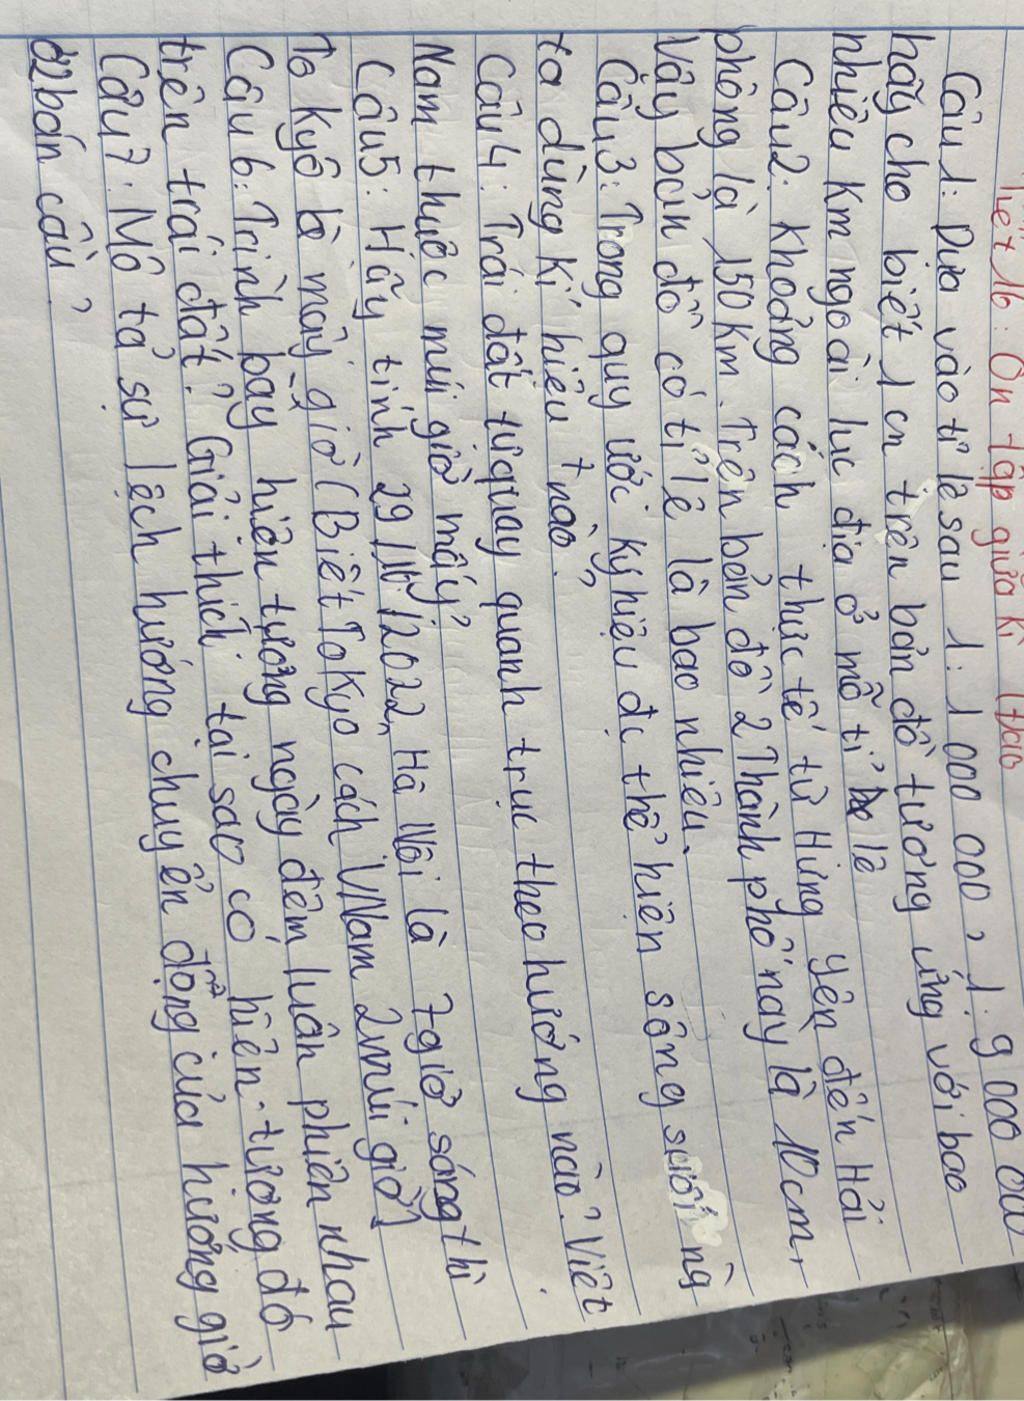 Tiết 16: Ôn tập giữa kì (Đao
Câu 1: Dựa vào tỉ lệ sau 1: 1 000 000, 1: 9 000 000
hãy cho biết 1 cm trên bản đồ tương ứng với bao
nhiêu Km ngoài lục địa ở mỗ tỉ lệ
Câu 2: Khoảng cách thực tế từ Hưng yên đến Hải
phòng là 150 Km. Trên bản đồ 2 Thành phố nay là 10cm,
Vây bản đồ có tỉ lệ là bao nhiêu.
Câu 3: Trong quy ước ký hiệu để thể hiện sông suối ng
ta dùng kí hiệu nào?
Câu 4: Trái đất tự quay quanh trục theo hướng nào? Việt
Nam thuộc múi giờ mấy?
Câu 5: Hãy tính 29/10/2022, Hà Nội là 7 giờ sáng thì
To kyô là mấy giờ (Biết Tokyo cách VNam 2 múi giờ)
Câu 6: Trình bày hiện tượng ngày đêm luân phiên nhau
trên trái đất? Giải thích tại sao có hiện tượng đó
Câu 7: Mô tả sự lệch hướng chuyển động của hướng gió
ở 2 bán cầu?